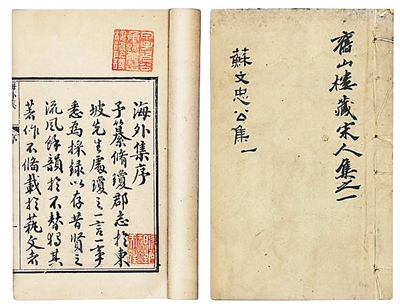 海外集序
予纂脩瓊郡志於東
坡先生處瓊之一言一事
悉為採錄以存昔賢之
流風餘韻於不替獨其
著作不俻載於藝文者
海外集
序
舊山樓藏宋人集之一
蘇文忠公集一